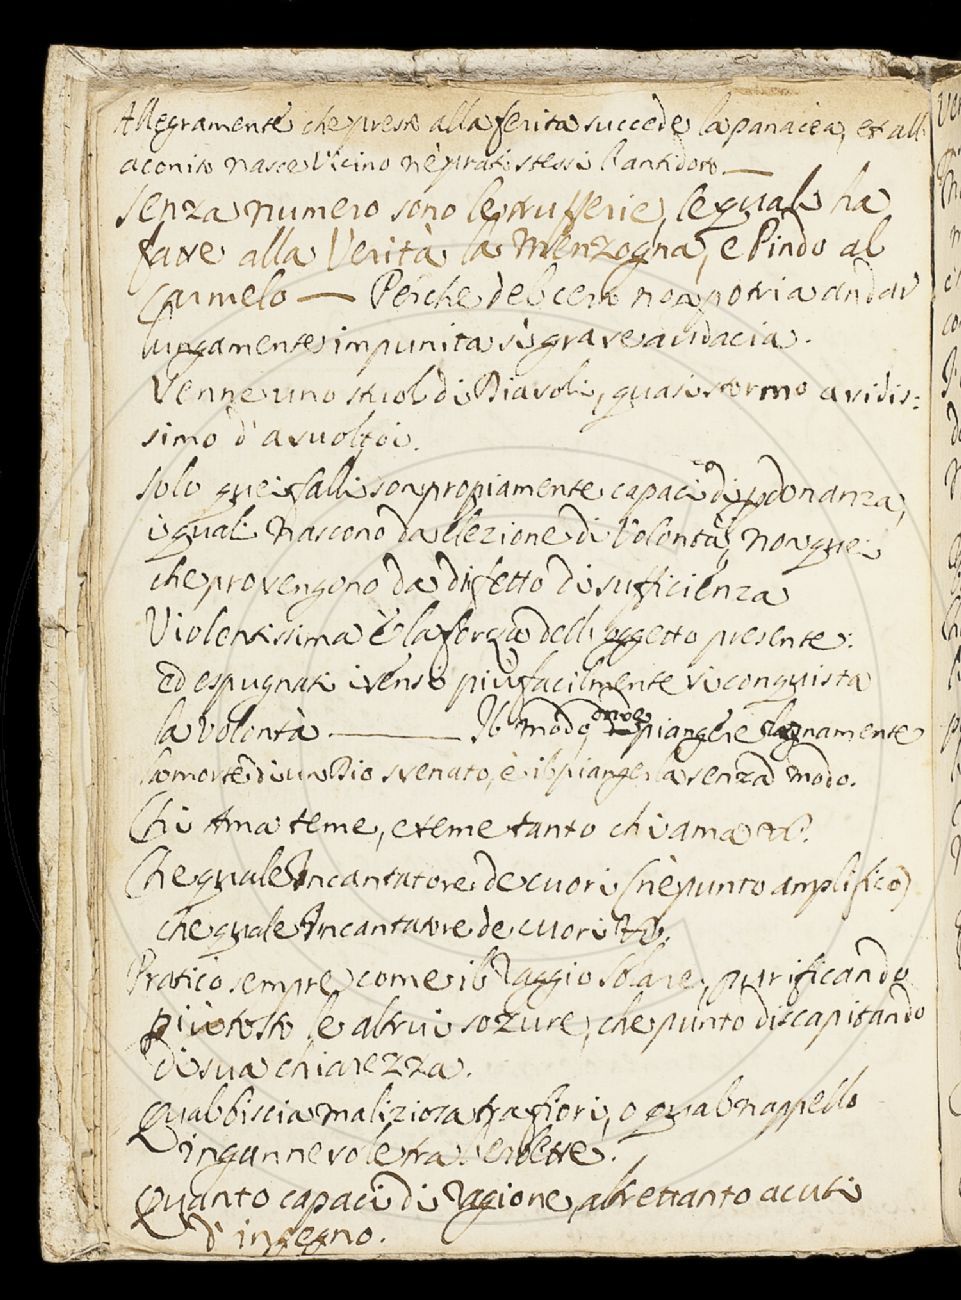 Allegramente che presto alla ferita succede la panacea, et all'
aconito nasce vicino ne prati stessi l'antidoto —
Senza numero sono le truffe rie, le quali ha
fatte alla Verità la Menzogna, e Pindo al
Carmelo — Perche del certo non potria andar
lungamente impunita sì grave audacia.
Venne uno stuol di Diavoli, quasi stormo avidis:
simo d'avuoltoi.
Solo quei falli son propiamente capaci di pdonanza,
i quali nascono da elezione di Volontà, non quei
che provengono da difetto di sufficienza
Violentissima è la forza dell'oggetto presente:
ed espugnati i sensi più facilmente si conquista
la volontà — Il modo, onde piangere degnamente
la morte di un Dio svenato, è il piangerla senza modo.
Chi Ama teme, e teme tanto chi ama &c.
Che quale Incantatore de cuori (nè punto amplifico)
che quale Incantatore de cuori &c.
Praticò sempre come il Raggio Solare, purificando
più tosto le altrui sozure, che punto discapitando
di sua chiarezza.
Qual biscia maliziosa tra fiori, o qual nappello
ingannevole tra l'erbette.
Quanto capaci di Ragione, altrettanto acuti
d'ingegno.